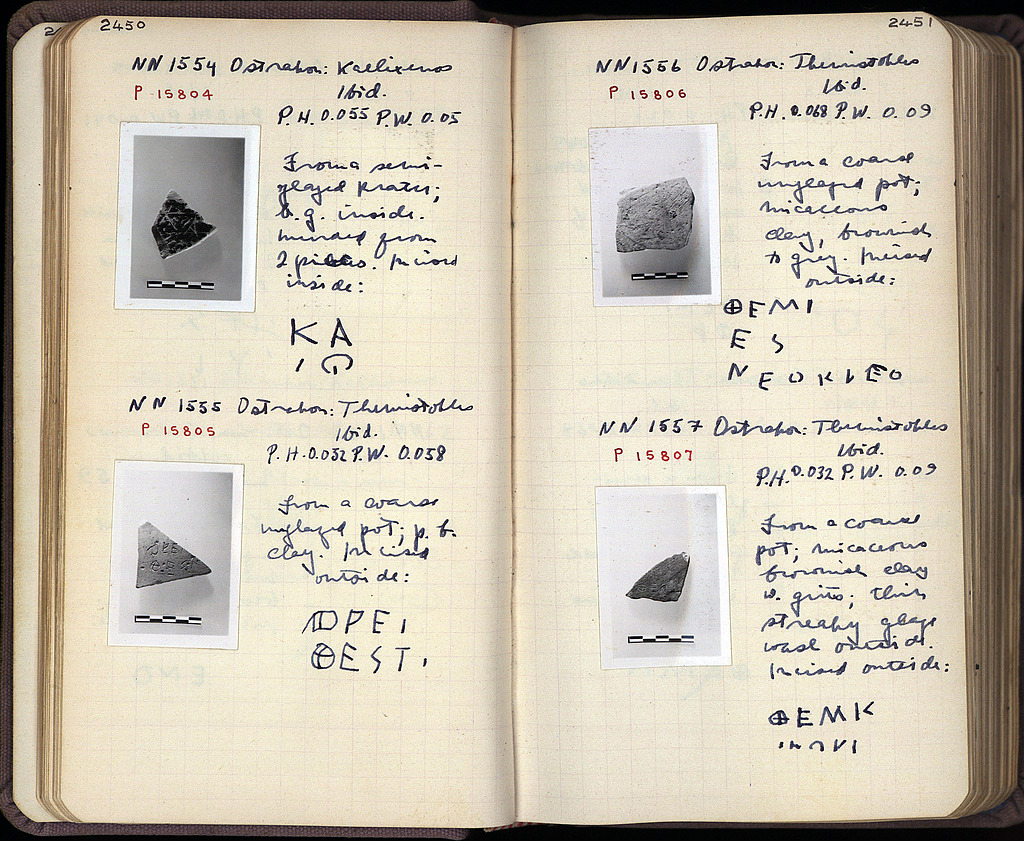 2450
NN 1554 Ostrakon: Kallixenos
P 15804 Ibid.
P.H. 0.055 P.W. 0.05
From a semi-
glazed krater;
b.g. inside.
Mended from
2 pieces. Incised
inside:
KA
NN 1555 Ostrakon: Themistokles
P 15805 Ibid.
P.H. 0.052 P.W. 0.058
From a coarse
unglazed pot; p. b.
clay. Incised
outside:
2451
NN 1556 Ostrakon: Themistokles
P 15806 Ibid.
P.H. 0.068 P.W. 0.09
From a coarse
unglazed pot;
micaceous
clay, brownish
to grey. Incised
outside:
⊕EMI
ES
NEOKLEO
NN 1557 Ostrakon: Themistokles
P 15807 Ibid.
P.H. 0.032 P.W. 0.09
From a coarse
pot; micaceous
brownish clay
w. grits; thin
streaky glaze
wash outside.
Incised outside:
⊕EMK